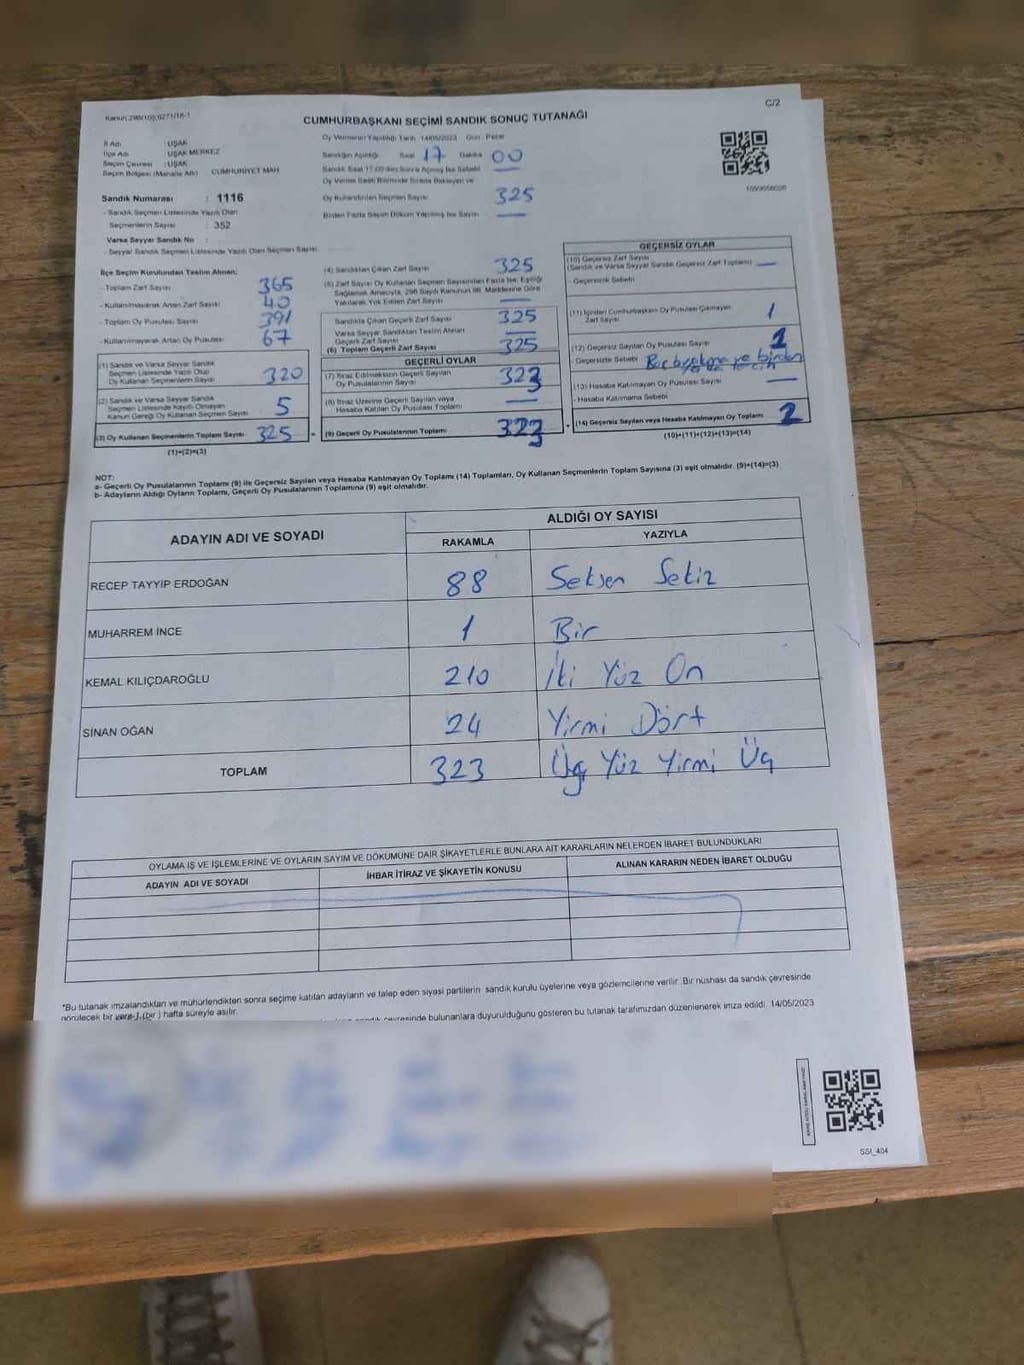 Kanun:298/105,6271/18-1
C/2
CUMHURBAŞKANI SEÇİMİ SANDIK SONUÇ TUTANAĞI
İl Adı : UŞAK
İlçe Adı : UŞAK MERKEZ
Seçim Çevresi : UŞAK
Seçim Bölgesi (Mahalle Adı) CUMHURİYET MAH
Sandık Numarası : 1116
- Sandık Seçmen Listesinde Yazılı Olan
Seçmenlerin Sayısı : 352
Varsa Seyyar Sandık No :
- Seyyar Sandık Seçmen Listesinde Yazılı Olan Seçmen Sayısı:
Oy Vermenin Yapıldığı Tarih 14/05/2023 Gün Pazar
Sandığın Açıldığı Saat 17 Dakika 00
Sandık Saat 17:00'den Sonra Açılmış İse Sebebi
Oy Verme Saati Bitiminde Sırada Bekleyen ve
Oy Kullandırılan Seçmen Sayısı 325
Birden Fazla Sayım Döküm Yapılmış İse Sayısı
İlçe Seçim Kurulundan Teslim Alınan;
- Toplam Zarf Sayısı 365
- Kullanılmayarak Artan Zarf Sayısı 40
- Toplam Oy Pusulası Sayısı 391
- Kullanılmayarak Artan Oy Pusulası 67
(1) Sandık ve Varsa Seyyar Sandık
Seçmen Listesinde Yazılı Olup
Oy Kullanan Seçmenlerin Sayısı 320
(2) Sandık ve Varsa Seyyar Sandık
Seçmen Listesinde Kayıtlı Olmayan
Kanun Gereği Oy Kullanan Seçmen Sayısı 5
(3) Oy Kullanan Seçmenlerin Toplam Sayısı 325
(1)+(2)=(3)
(4) Sandıktan Çıkan Zarf Sayısı 325
(5) Zarf Sayısı Oy Kullanan Seçmen Sayısından Fazla İse, Eşitliği
Sağlamak Amacıyla, 298 Sayılı Kanunun 98. Maddesine Göre
Yakılarak Yok Edilen Zarf Sayısı
Sandıkta Çıkan Geçerli Zarf Sayısı 325
Varsa Seyyar Sandıktan Teslim Alınan
Geçerli Zarf Sayısı
(6) Toplam Geçerli Zarf Sayısı 325
GEÇERLİ OYLAR
(7) İtiraz Edilmeksizin Geçerli Sayılan
Oy Pusulalarının Sayısı 323
(8) İtiraz Üzerine Geçerli Sayılan veya
Hesaba Katılan Oy Pusulası Toplamı
= (9) Geçerli Oy Pusulalarının Toplamı 323
GEÇERSİZ OYLAR
(10) Geçersiz Zarf Sayısı
(Sandık ve Varsa Seyyar Sandık Geçersiz Zarf Toplamı)
- Geçersizlik Sebebi
(11) İçinden Cumhurbaşkanı Oy Pusulası Çıkmayan
Zarf Sayısı 1
(12) Geçersiz Sayılan Oy Pusulası Sayısı 1
- Geçersizlik Sebebi
(13) Hesaba Katılmayan Oy Pusulası Sayısı
- Hesaba Katılmama Sebebi
+ (14) Geçersiz Sayılan veya Hesaba Katılmayan Oy Toplamı 2
(10)+(11)+(12)+(13)=(14)
NOT:
a- Geçerli Oy Pusulalarının Toplamı (9) ile Geçersiz Sayılan veya Hesaba Katılmayan Oy Toplamı (14) Toplamları, Oy Kullanan Seçmenlerin Toplam Sayısına (3) eşit olmalıdır. (9)+(14)=(3)
b- Adayların Aldığı Oyların Toplamı, Geçerli Oy Pusulalarının Toplamına (9) eşit olmalıdır.
ADAYIN ADI VE SOYADI
ALDIĞI OY SAYISI
RAKAMLA YAZIYLA
RECEP TAYYİP ERDOĞAN 88 Seksen Sekiz
MUHARREM İNCE 1 Bir
KEMAL KILIÇDAROĞLU 210 İki Yüz On
SİNAN OĞAN 24 Yirmi Dört
TOPLAM 323 Üç Yüz Yirmi Üç
OYLAMA İŞ VE İŞLEMLERİNE VE OYLARIN SAYIM VE DÖKÜMÜNE DAİR ŞİKAYETLERLE BUNLARA AİT KARARLARIN NELERDEN İBARET BULUNDUKLARI
ADAYIN ADI VE SOYADI İHBAR İTİRAZ VE ŞİKAYETİN KONUSU ALINAN KARARIN NEDEN İBARET OLDUĞU
*Bu tutanak imzalandıktan ve mühürlendikten sonra seçime katılan adayların ve talep eden siyasi partilerin sandık kurulu üyelerine veya gözlemcilerine verilir. Bir nüshası da sandık çevresinde
görülecek bir yere 1 (bir) hafta süreyle asılır.
sandık çevresinde bulunanlara duyurulduğunu gösteren bu tutanak tarafımızdan düzenlenerek imza edildi. 14/05/2023
SSI_404